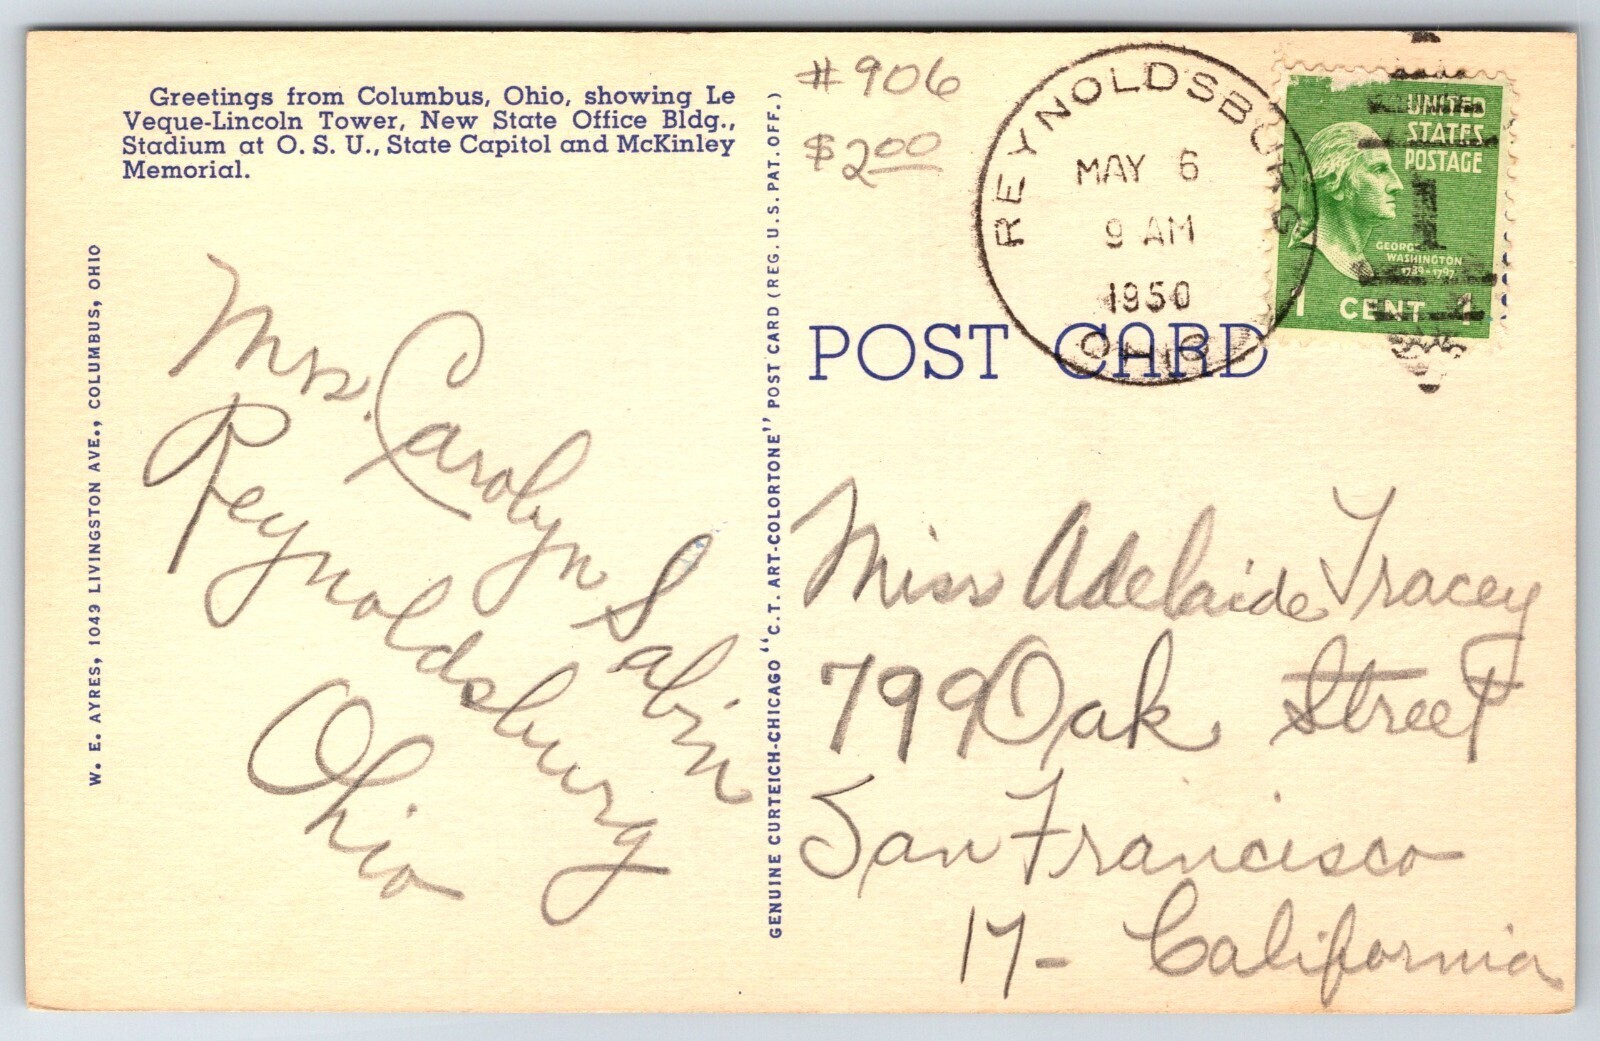 Greetings from Columbus, Ohio, showing Le
Veque-Lincoln Tower, New State Office Bldg.,
Stadium at O. S. U., State Capitol and McKinley
Memorial.
W. E. AYRES, 1049 LIVINGSTON AVE., COLUMBUS, OHIO
Mrs. Carolyn Sabin
Reynoldsburg
Ohio
GENUINE CURTEICH-CHICAGO "C.T. ART-COLORTONE" POST CARD (REG. U.S. PAT. OFF.)
#906
$2.00
REYNOLDSBURG
MAY 6
9 AM
1950
OHIO
UNITED
STATES
POSTAGE
1
GEORGE
WASHINGTON
1789-1797
1 CENT 1
POST CARD
Miss Adelaide Tracey
799 Oak Street
San Francisco
17- California